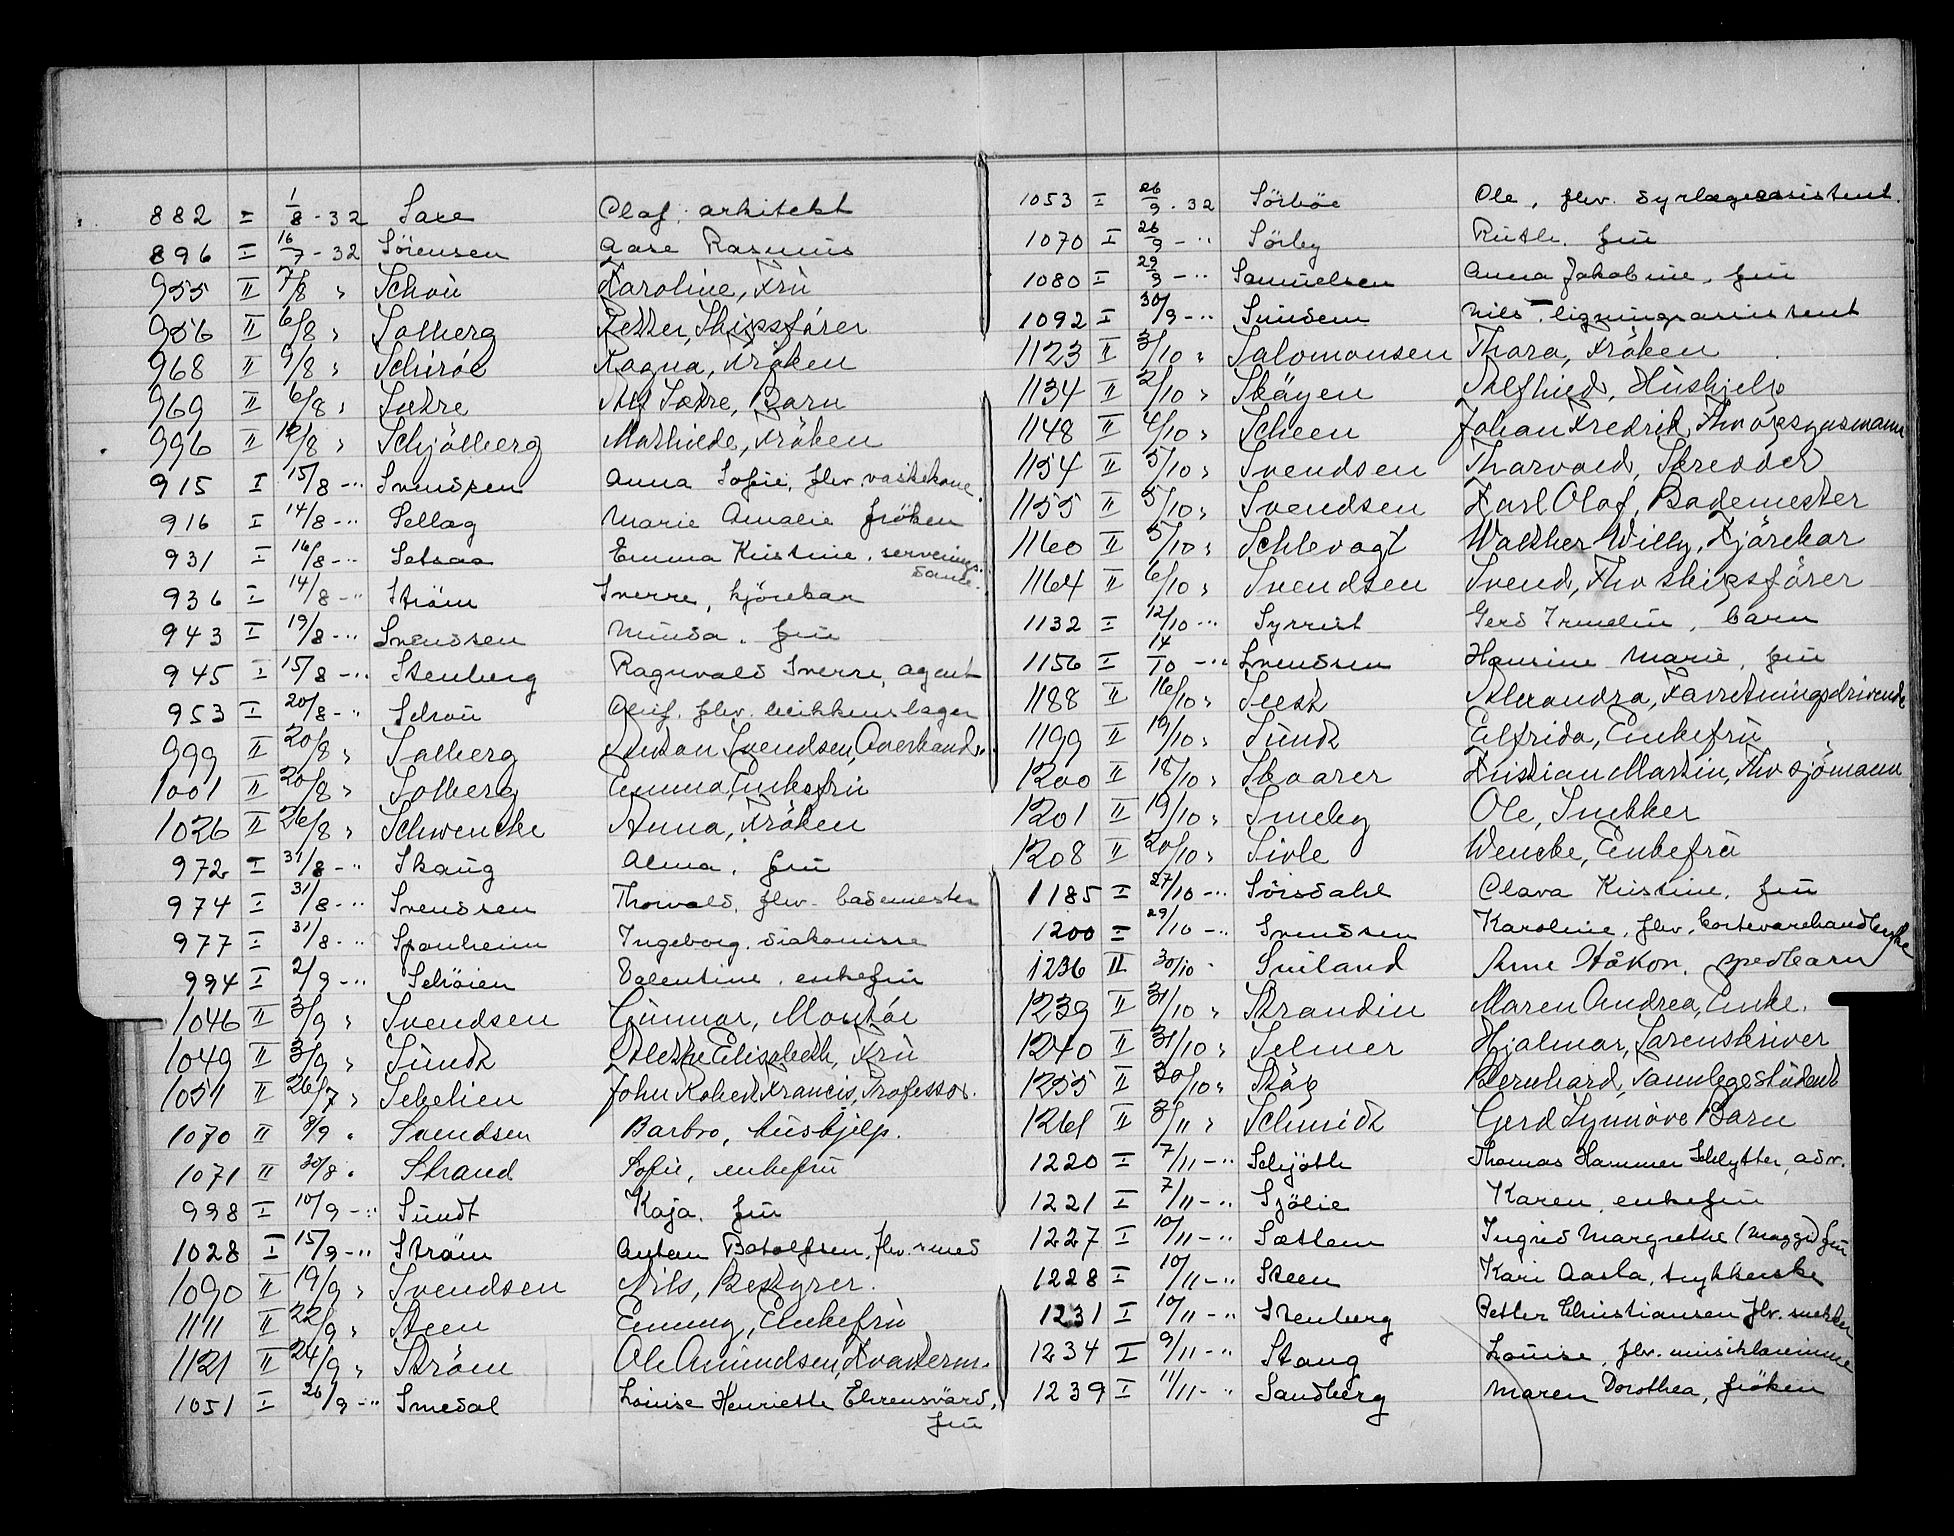 882 I 1/8 - 32 Saxe Olaf, arkitekt
896 I 16/7 - 32 Sörensen Aase Rasmus
955 II 7/8 " Schou Karoline, Fru
956 II 6/8 " Solberg Petter, Skipsförer
968 II 9/8 " Schiröe Ragna, Fröken
969 II 6/8 " Sætre Alf Sætre, Barn
996 II 12/8 " Schjölberg Mathilde, Fröken
915 I 15/8 - " Svendsen Anna Sofie, fhv. vaskekone.
916 I 14/8 - " Sellag Marie Amalie fröken
931 I 16/8 - " Setsaa Emma Kristine, serverings-
dame.
936 I 14/8 - " Ström Sverre, kjörekar
943 I 19/8 - " Svendsen Minda, fru
945 I 15/8 - " Stenberg Ragnvald Sverre, agent
953 I 20/8 - " Schou fhv.
999 II 20/8 " Solberg Anton Svendsen,
1001 II 20/8 " Solberg Emma, Enkefru
1026 II 26/8 " Schwencke Anna, Fröken
972 I 31/8 - " Skaug Alma, fru
974 I 31/8 - " Svendsen Thorvald, fhv. bademester
977 I 31/8 - " Sponheim Ingeborg, diakonisse
994 I 2/9 - " Schöien Valentine, enkefru
1046 II 3/9 " Svendsen Gunnar, Montör
1049 II 3/9 " Sundt Alethe Elisabeth, Fru
1051 II 26/7 " Sebelien John Robert Francis, Professor.
1070 II 8/9 " Svendsen Barbro, hushjelp.
1071 II 30/8 " Strand Sofie, enkefru
998 I 10/9 - " Sundt Kaja, fru
1028 I 15/9 - " Ström Anton Botolfsen, fhv. smed
1090 II 19/9 " Svendsen Nils, Bestyrer.
1111 II 22/9 " Steen Emmy, Enkefru
1121 II 24/9 " Ström Ole Amundsen, Kvarterm.
1051 I 26/9 - " Smedal Louise Henriette Ehrensvärd,
fru
1053 I 26/9 - 32 Sörböe Ole, fhv. dyrlægeassistent.
1070 I 26/9 - " Sörby Ruth, fru
1080 I 29/9 - " Samuelsen Anna Jakobine, fru
1092 I 30/9 - " Nils, ligningsassistent
1123 II 3/10 " Salomonsen Thora, Fröken
1134 II 2/10 " Skäyen Alfhild, Hushjelp
1148 II 4/10 " Scheen Johan Fredrik, Fhv opsynsmann
1154 II 5/10 " Svendsen Tharvald, Skredder
1155 II 5/10 " Svendsen Karl Olaf, Bademester
1160 II 5/10 " Schlevogt Walther Willy, Kjörekar
1164 II 6/10 " Svendsen Svend, Fhv skipsförer
1132 I 12/10 - " Syrrist Gerd Irmelin, barn
1156 I 14/10 - " Svendsen Hansine Marie, fru
1188 II 16/10 " Seest Alexandra, Forretningsdrivende
1199 II 19/10 " Sundt Elfrida, Enkefru
1200 II 18/10 " Skaarer Kristian Martin, Fhv sjömann
1201 II 19/10 " Smeby Ole, Snekker
1208 II 20/10 " Sivle Wencke, Enkefru
1185 I 27/10 - " Sörsdahl Clara Kristine, fru
1200 I 29/10 - " Svendsen Karoline, fhv. kortevarehandlerske
1236 II 30/10 " Suiland Arne Håkon, spedbarn
1239 II 31/10 " Strandin Maren Andrea, Enke.
1240 II 31/10 " Selmer Hjalmar, Sorenskriver
1255 II 30/10 " Stöp Bernhard, Tannlegestudent
1261 II 3/11 " Schmidt Gerd Synnöve Barn
1220 I 7/11 - " Schjöth Thomas Hammer Schlytter, adv.
1221 I 7/11 - " Sjölie Karen, enkefru
1227 I 10/11 - " Sætlem Ingrid Margrethe (Maggi) fru
1228 I 10/11 - " Steen Kari Aasta, trykkerske
1231 I 10/11 - " Stenberg Petter Christiansen fhv. snekker
1234 I 9/11 - " Stang Louise, fhv. musiklærerinne
1239 I 11/11 - " Sandberg Maren Dorothea, fröken